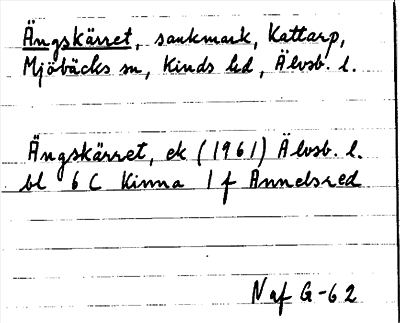 Ängskärret, sankmark, Kattarp,
Mjöbäcks sn, Kinds hd, Älvsb. l.
Ängskärret, ek (1961) Älvsb. l.
bl 6 C Kinna 1 f Annelsred
N af G-62